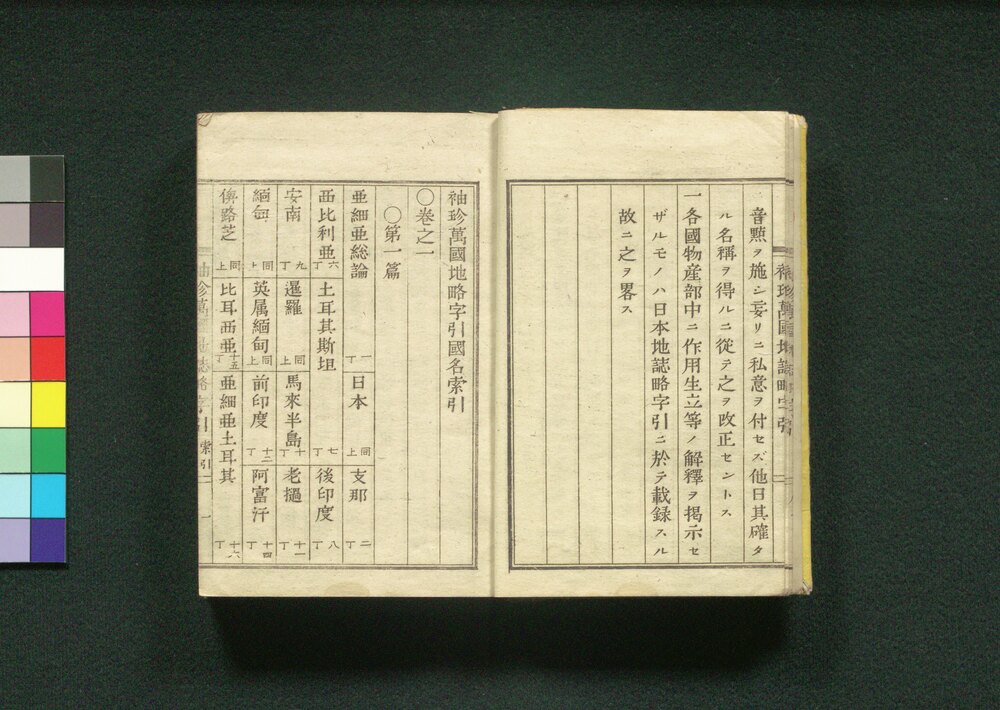 音㸃ヲ施シ妄リニ私意ヲ付セズ他日其確タ
ル名稱ヲ得ルニ従テ之ヲ改正セントス
一各國物産部中ニ作用生立等ノ解釋ヲ掲示セ
ザルモノハ日本地誌略字引ニ於テ載録スル
故ニ之ヲ畧ス
袖珍萬國地略字引國名索引
〇卷之一
〇第一篇
亜細亜総論 一丁 日本 同上 支那 二丁
西比利亜 六丁 土耳其斯坦 七丁 後印度 八丁
安南 九丁 暹羅 同上 馬來半島 十丁 老撾 十一丁
緬甸 同上 英属緬甸 同上 前印度 十二丁 阿富汗 十四丁
俾路芝 同上 比耳西亜 十五丁 亜細亜土耳其 十六丁